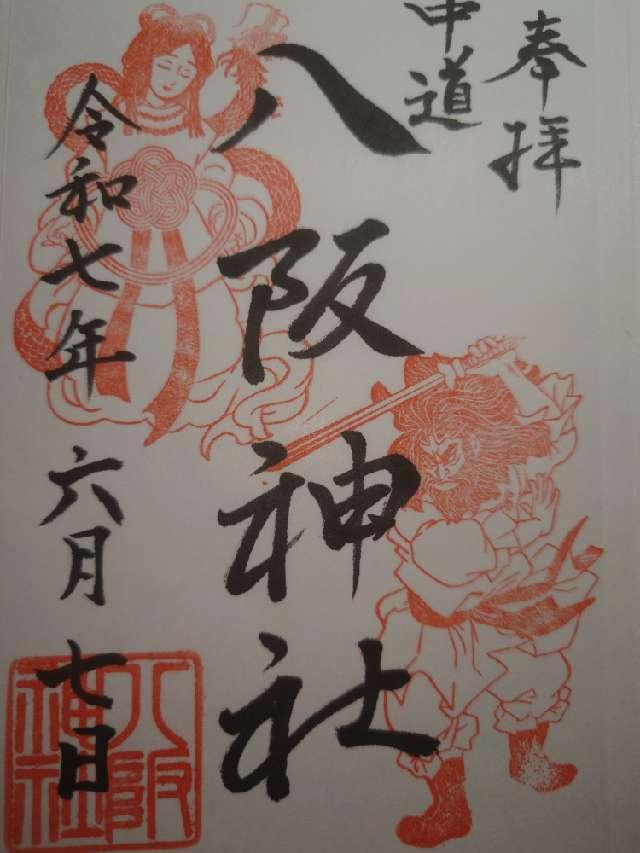 奉拝
中道
八阪神社
令和七年 六月 七日
八阪
神社